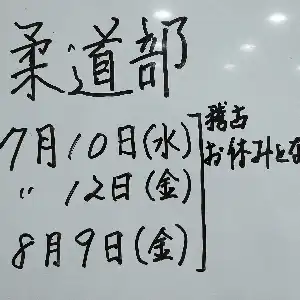 柔道部
7月10日(水)
〃 12日(金)
8月9日(金)
稽古
お休みとな